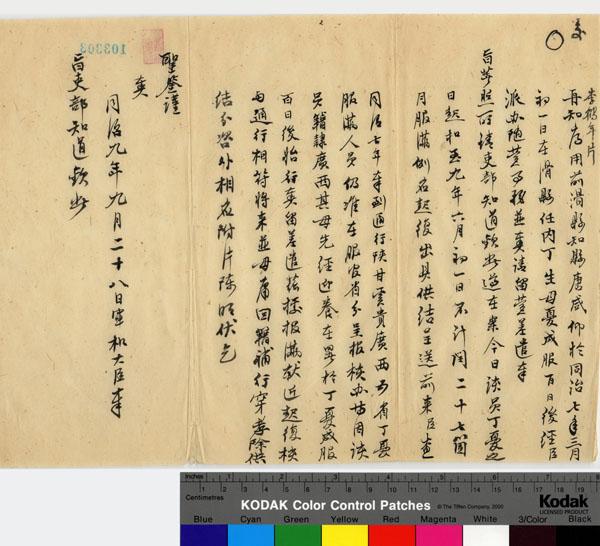 李鶴年片
再知府用前滑縣知縣唐咸仰於同治七年三月
初一日在滑縣任內丁生母憂成服百日後經臣
派辦隨營事務並奏請留營差遣奉
旨著照所請吏部知道欽此遵在案今日該員丁憂之
日起扣至九年六月初一日不計閏二十七箇
月服滿例應起復出具供結呈送前來臣查
同治七年奉到通行陝甘雲貴廣西五省丁憂
服滿人員仍准在服官省分呈報核辦 因該
員籍隸廣西其母先經迎養在署於丁憂成服
百日後始行奏留差遣茲據報滿 起復核
與通行相符將來並毋庸回籍補行穿孝除供
結分咨外相應附片陳明伏乞
聖鑒謹
奏
同治九年九月二十八日軍機大臣奉
旨吏部知道欽此
103303
Inches 1 2 3 4 5 6 7 8
Centimetres 1 2 3 4 5 6 7 8 9 10 11 12 13 14 15 16 17 18 19
KODAK Color Control Patches © The Tiffen Company, 2000
Kodak
LICENSED PRODUCT
Blue Cyan Green Yellow Red Magenta White 3/Color Black